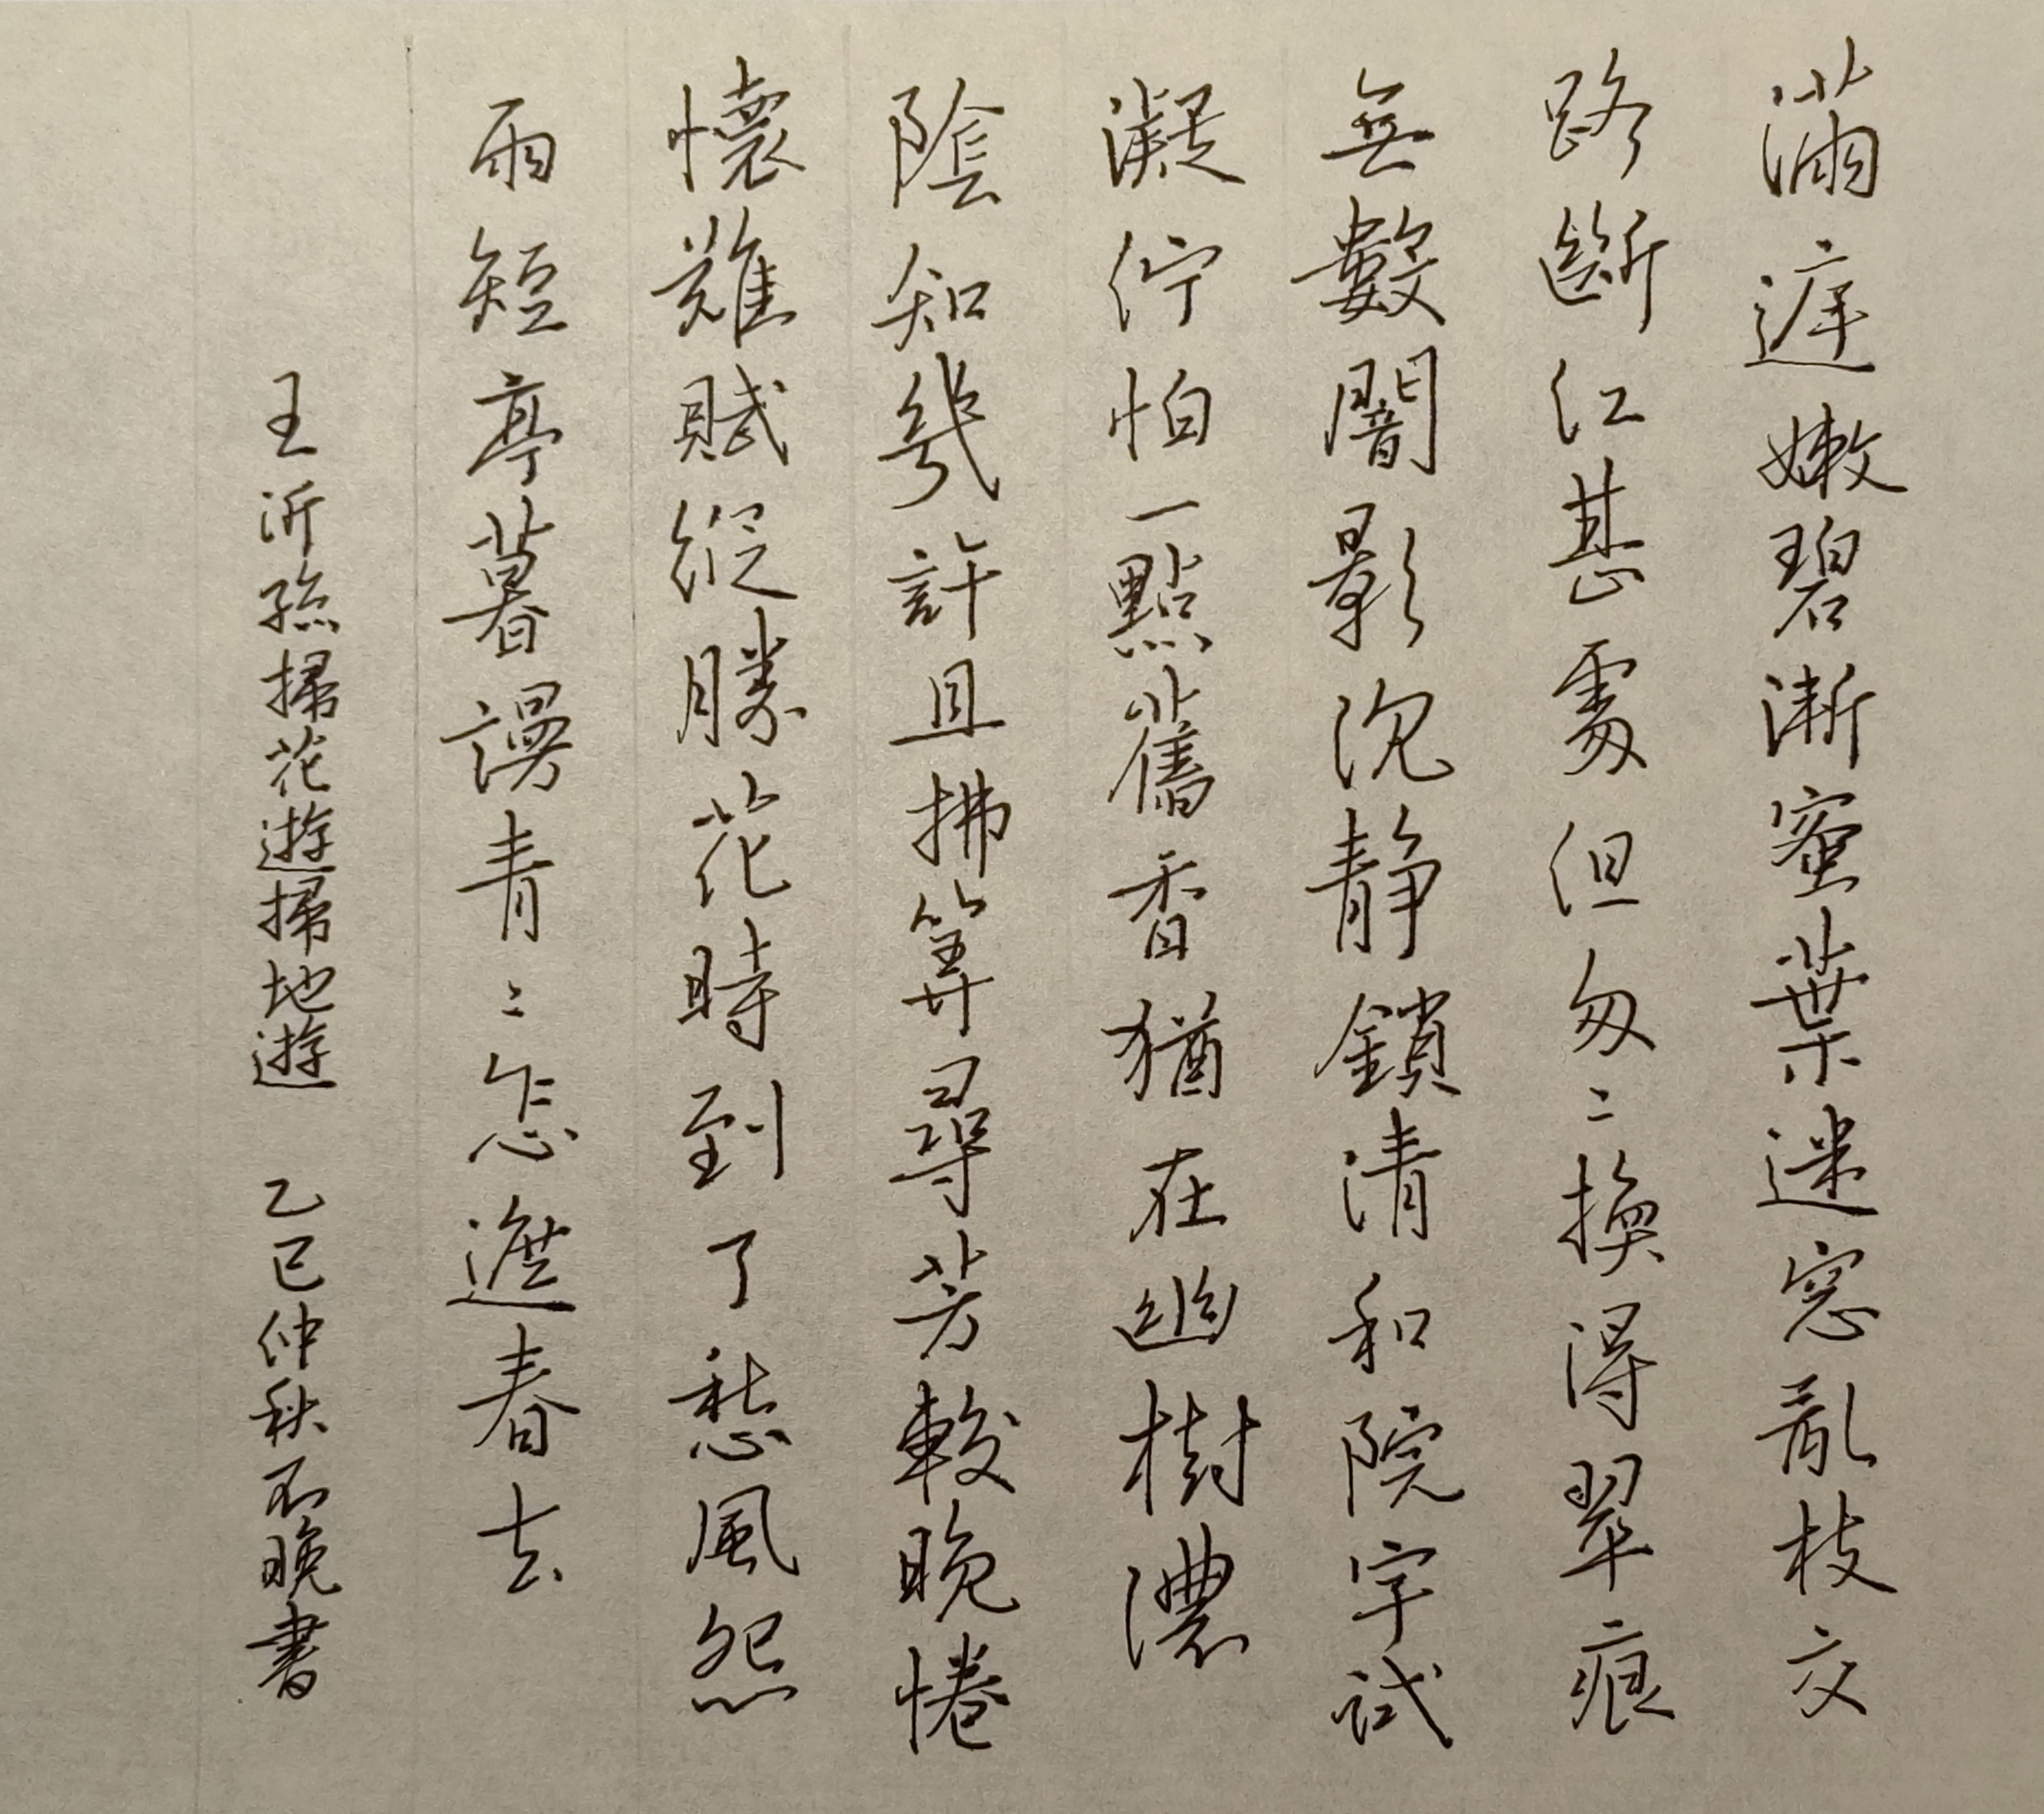 滿庭嫩碧漸密葉迷窓亂枝交
路斷江甚處但匆〻換得翠痕
無數闇影沉靜鎖清和院宇試
凝佇怕一點舊香猶在幽樹濃
陰知幾許且拂簟尋芳較晚惓
懷難賦縱勝花時到了愁風怨
雨短亭暮謾青〻怎遮春去
王沂孫掃花遊掃地遊 乙巳仲秋不晚書